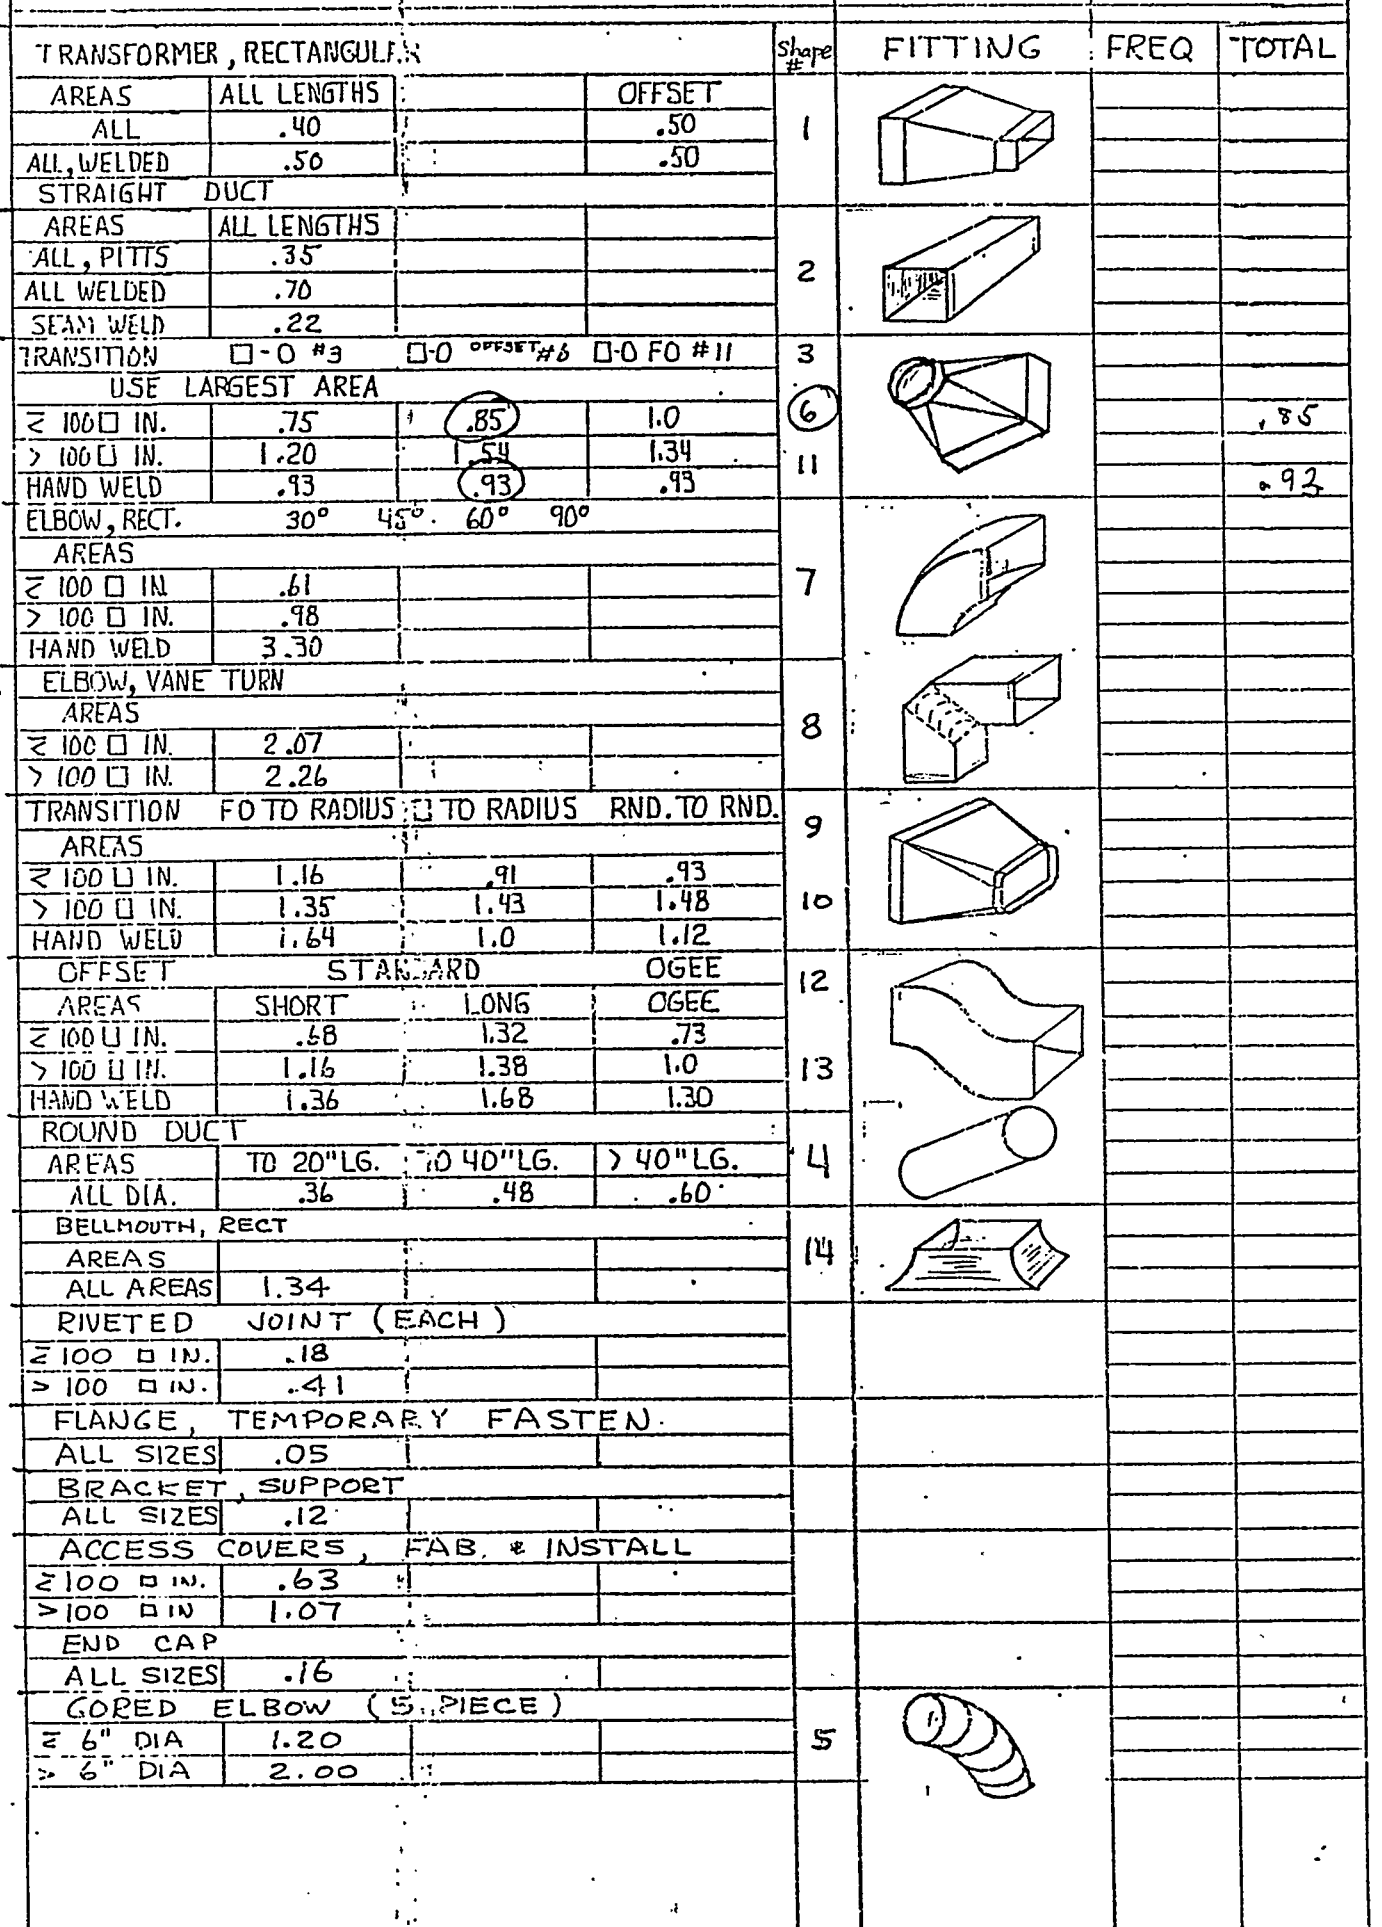 TRANSFORMER, RECTANGULAR shape # FITTING FREQ TOTAL
AREAS ALL LENGTHS OFFSET
ALL .40 .50 1
ALL, WELDED .50 .50
STRAIGHT DUCT
AREAS ALL LENGTHS
ALL, PITTS .35 2
ALL WELDED .70
SEAM WELD .22
TRANSITION □-O #3 □-O OFFSET #6 □-O FO #11 3
USE LARGEST AREA
≤ 100 □ IN. .75 .85 1.0 6 .85
> 100 □ IN. 1.20 1.54 1.34 11
HAND WELD .93 .93 .93 .93
ELBOW, RECT. 30° 45° 60° 90°
AREAS
≤ 100 □ IN .61 7
> 100 □ IN. .98
HAND WELD 3.30
ELBOW, VANE TURN
AREAS 8
≤ 100 □ IN. 2.07
> 100 □ IN. 2.26
TRANSITION FO TO RADIUS □ TO RADIUS RND. TO RND. 9
AREAS
≤ 100 □ IN. 1.16 .91 .93
> 100 □ IN. 1.35 1.43 1.48 10
HAND WELD 1.64 1.0 1.12
OFFSET STANDARD OGEE 12
AREAS SHORT LONG OGEE
≤ 100 □ IN. .68 1.32 .73
> 100 □ IN. 1.16 1.38 1.0 13
HAND WELD 1.36 1.68 1.30
ROUND DUCT
AREAS TO 20" LG. TO 40" LG. > 40" LG. 4
ALL DIA. .36 .48 .60
BELLMOUTH, RECT
AREAS 14
ALL AREAS 1.34
RIVETED JOINT (EACH)
≤ 100 □ IN. .18
> 100 □ IN. .41
FLANGE, TEMPORARY FASTEN.
ALL SIZES .05
BRACKET, SUPPORT
ALL SIZES .12
ACCESS COVERS, FAB. & INSTALL
≤ 100 □ IN. .63
> 100 □ IN 1.07
END CAP
ALL SIZES .16
GORED ELBOW (5 PIECE)
≤ 6" DIA 1.20 5
> 6" DIA 2.00